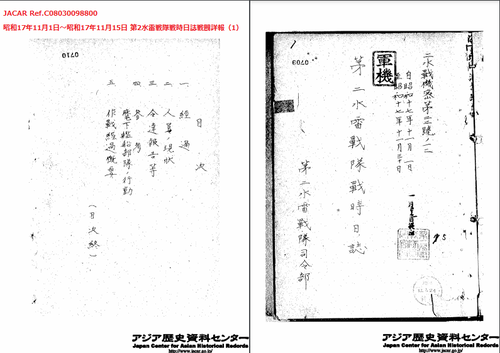 JACAR Ref.C08030098800
昭和17年11月1日～昭和17年11月15日 第2水雷戦隊戦時日誌戦闘詳報（1）
0709
軍機
自昭和十七年十一月一日
至昭和十七年十一月三十日
第二水雷戰隊戰時日誌
第二水雷戰隊司令部
0710
目次
一 経過
二 人員ノ現状
三 令達報告等
四 参考
五 麾下艦船部隊ノ行動
作戦経過概要
（目次終）
アジア歴史資料センター
Japan Center for Asian Historical Records
http://www.jacar.go.jp/
アジア歴史資料センター
Japan Center for Asian Historical Records
http://www.jacar.go.jp/